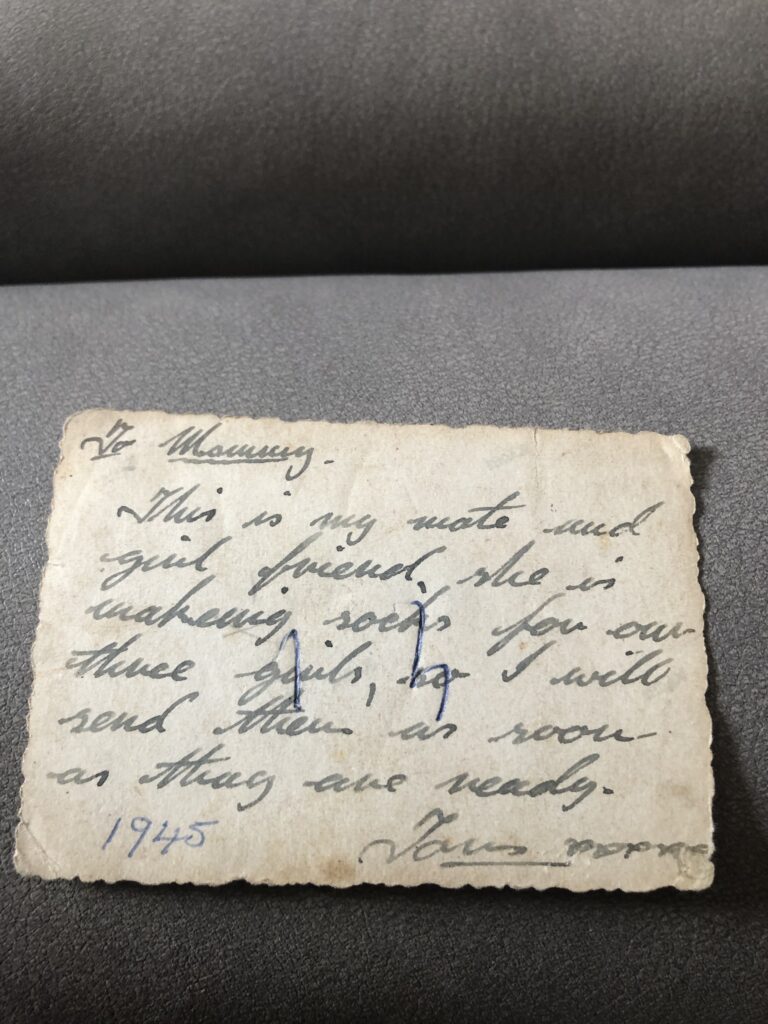 To Mammy.
This is my mate and
girl friend, she is
makeing socks for our
three girls, so I will
send them as soon
as thay are ready.
xxxxx
1945